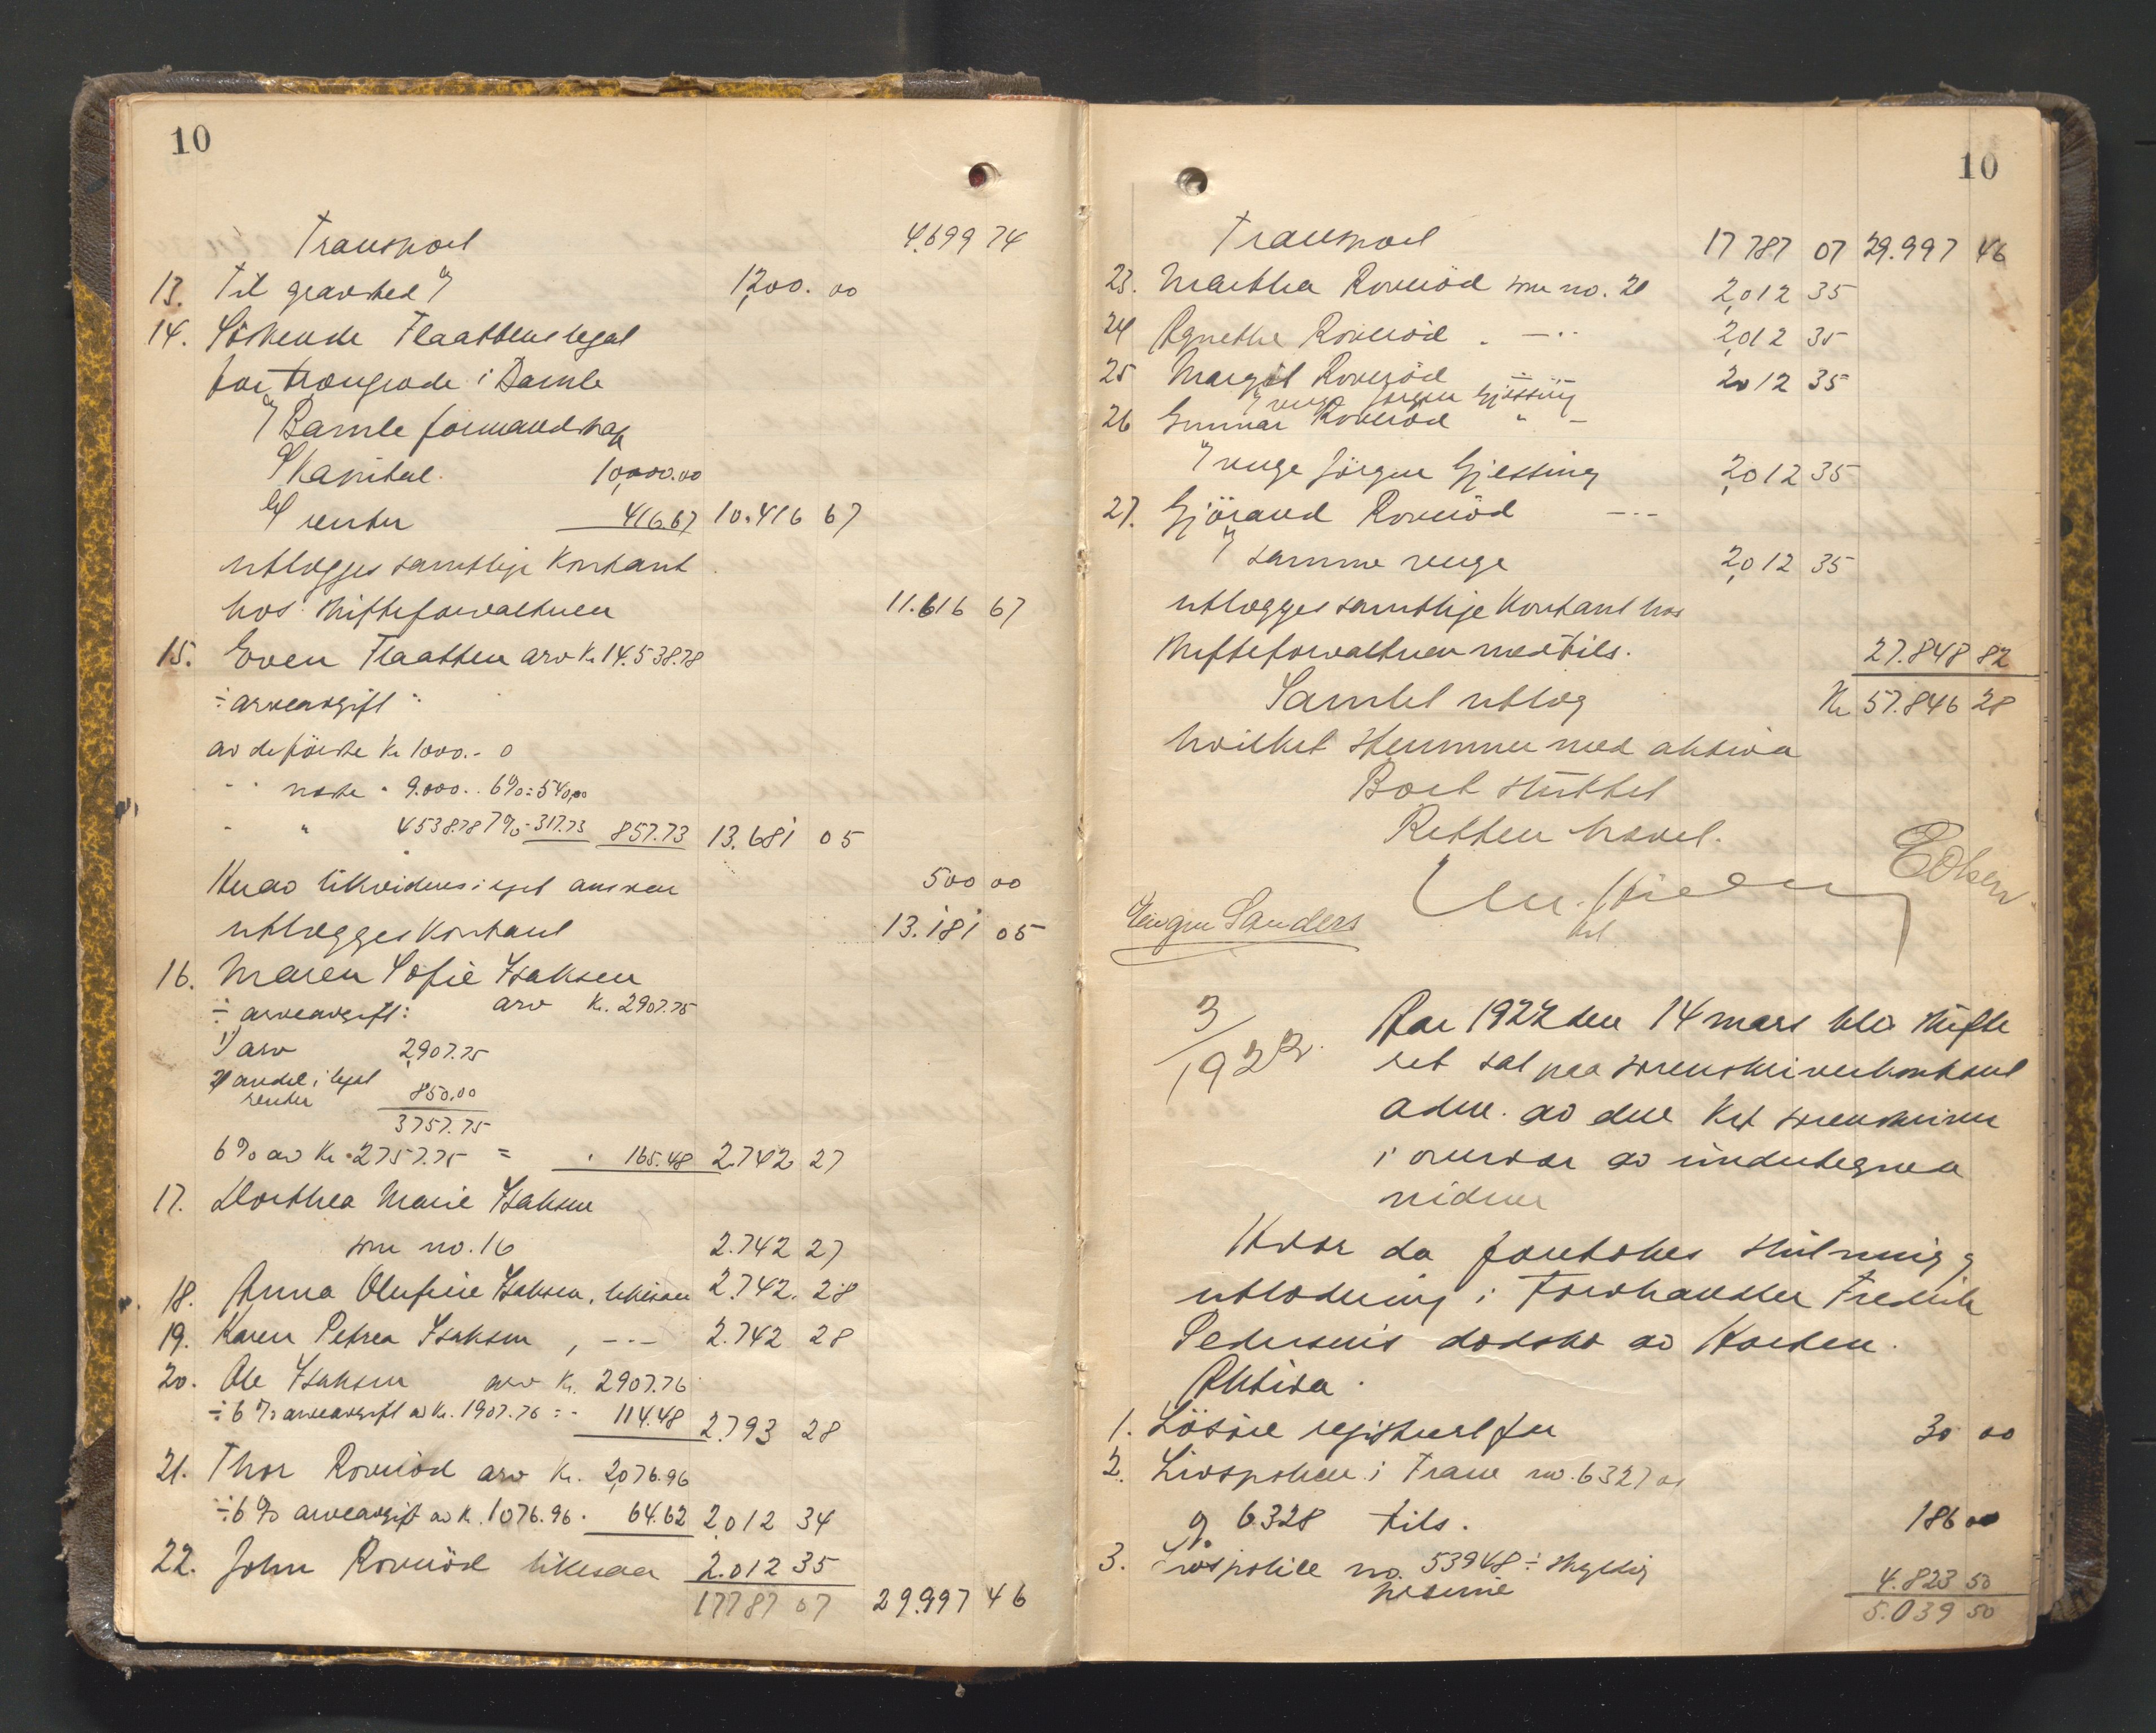 10
Transport 4.699 74
13. Til gravsted 1200.00
14. Søskende Flaattens legat
for trængende i Bamle
Bamle formandskap
Kapital. 10,000.00
renter 416.67 10.416 67
utlægges samtlige kontant
hos skifteforvalteren 11.616 67
15. Even Flaatten arv Kr. 14.538.78
÷ arveavgift:
av de første Kr 1000.- 0
" " næste " 9.000.. 6%=540,00
" " 4538.78 7%=317.73 857.73 13.681 05
Herav likvideres i eget ansvar 500 00
utlægges kontant 13.181 05
16. Maren Sofie Isaksen
arv Kr. 2907.75
÷ arveavgift:
1) arv 2907.75
2) andel i legat
renter 850.00
3757.75
6% av Kr. 2757.75 = " 165.48 2.742 27
17. Dorthea Marie Isaksen
som no. 16 2.742 27
18. Anna Olufine Isaksen, likesaa 2.742. 28
19. Karen Petrea Isaksen , -"- 2.742 28
20. Ole Isaksen arv Kr. 2907.76
÷ 6% arveavgift av Kr. 1907.76 = - 114.48 2793 28
21. Thor Rorvæd arv Kr. 2,076.96
÷6% arveavgift av Kr. 1076.96. 64.62 2,012 34
22. John likesaa 2.012 35
17787 07 29.997 46
10
Transport 17 787 07 29.997 46
23. Martha som no. 21 2,012 35
24 Agnethe " -"- 2,012 35
25 Margit 2012 35
verge Jørgen Gjessing
26 Gunnar " -
verge Jørgen Gjessing 2,012 35
27. Gjørand -"-
samme verge 2,012 35
utlægges samtlige kontant hos
skifteforvalteren med tils. 27.848 82
Samlet utlæg Kr 57.846 28
hvilket stemmer med aktiva
Boet sluttet
Retten hævet.
E Olsen
Sanders
3/1922.
Aar 1922 den 14 mars blev skifte
ret sat paa sorenskriverkontoret
adm. av den kst sorenskriver
i overvær av undertegnede
vidner
Hvor da foretokes slutning og
utlodning i Fredrik
Pedersens dødsbo av
Aktiva.
1. Løsøre registrert for 30 00
2. Livspolicer i no. 6327 og
og 6328 tils. 186 00
3. Livspolice no. 53948 ÷ skyldig
præmie 4.823 50
5.039 50